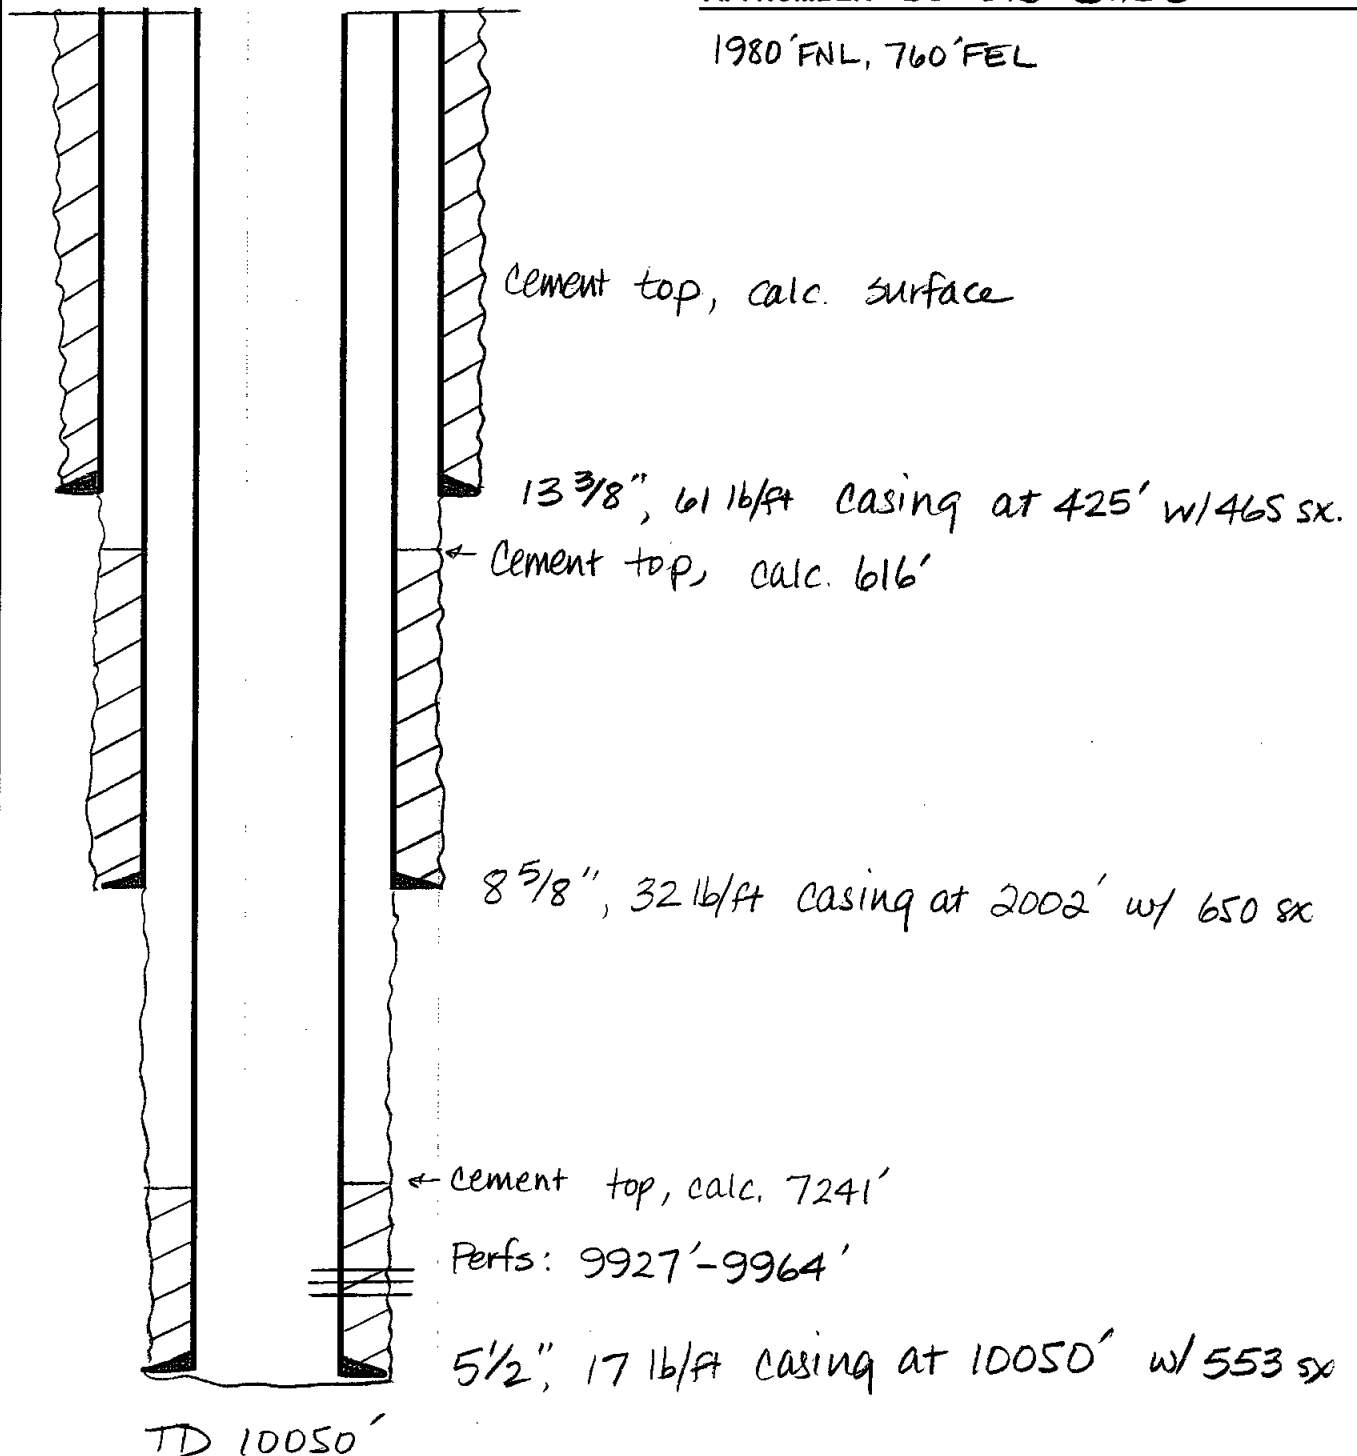 1980´FNL, 760´FEL
Cement top, calc. surface
13 3/8", 61 lb/ft casing at 425' w/465 sx.
Cement top, calc. 616'
8 5/8", 32 lb/ft casing at 2002' w/ 650 sx
cement top, calc. 7241'
Perfs: 9927'-9964'
5 1/2", 17 lb/ft casing at 10050' w/ 553 sx
TD 10050'